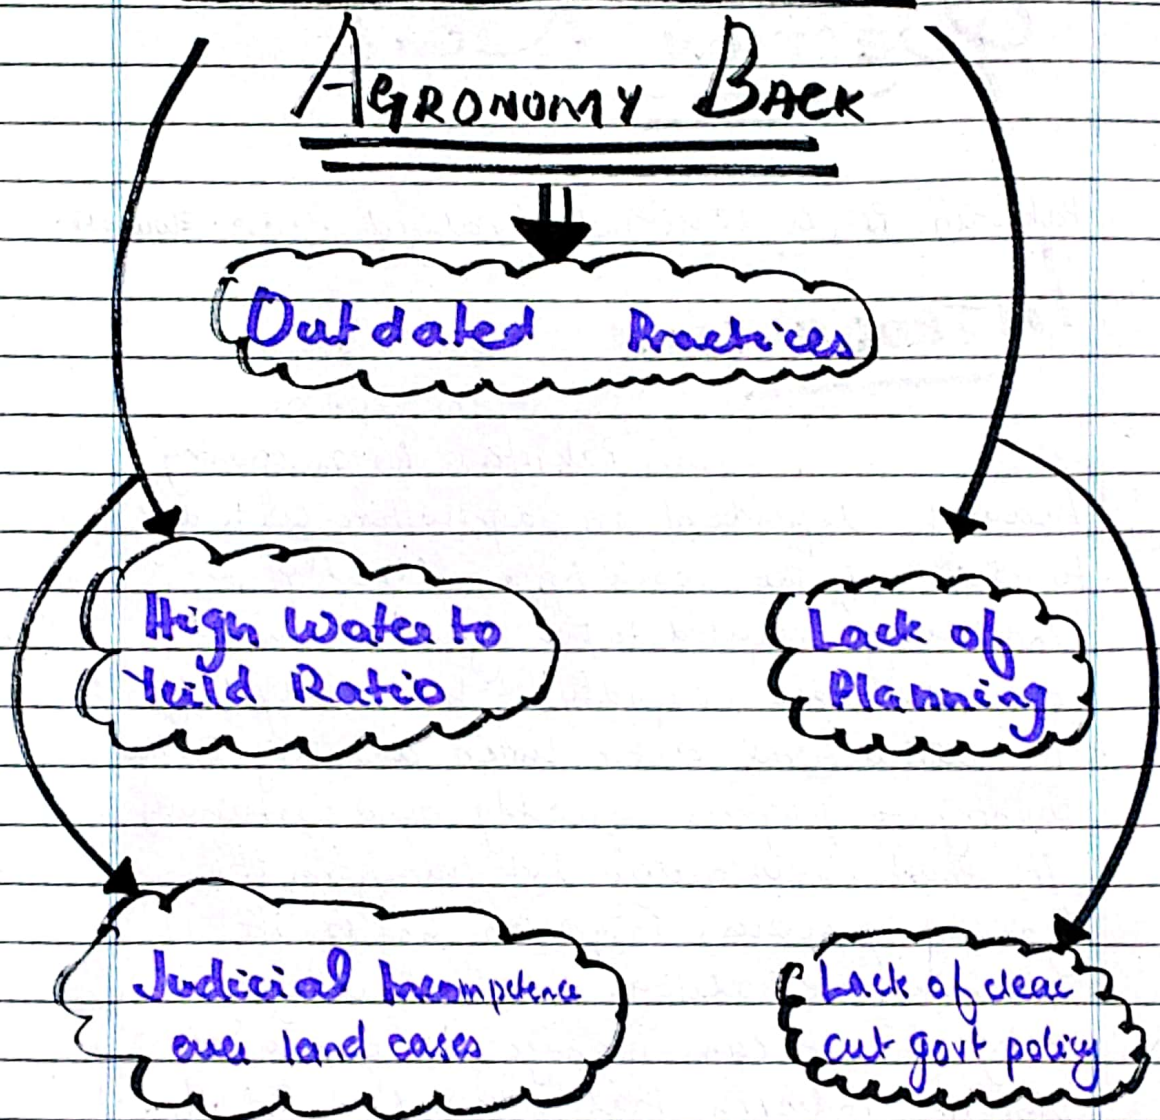 AGRONOMY BACK
Outdated Practices
High Water to
Yeild Ratio
Lack of
Planning
Judicial Incompetence
over land cases
Lack of clear
cut govt policy